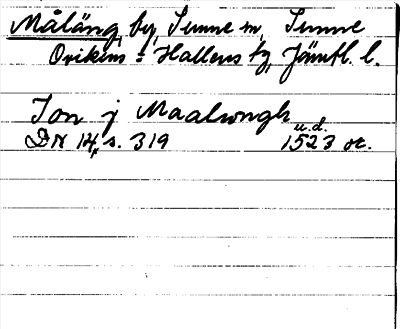 Måläng, by, Sunne sn, Sunne
Ovikens o Hallens tg, Jämtl. l.
Jon j Maalwngh
u.d.
DN 14, s. 319 1523 or.